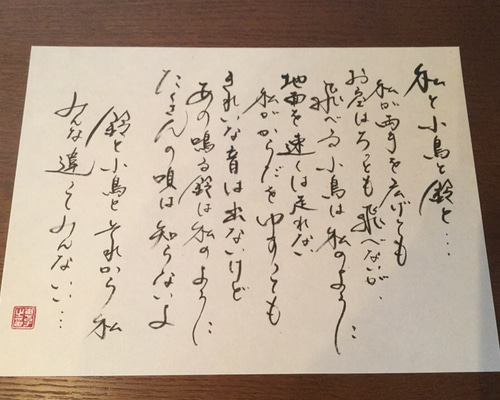 私と小鳥と鈴と…
私が両手を広げても
お空はちっとも飛べないが、
飛べる小鳥は私のように
地面を速くは走れない
私がからだをゆすっても
きれいな音は出ないけど
あの鳴る鈴は私のように
たくさんの唄は知らないよ
鈴と小鳥とそれから私
みんな違ってみんないい……